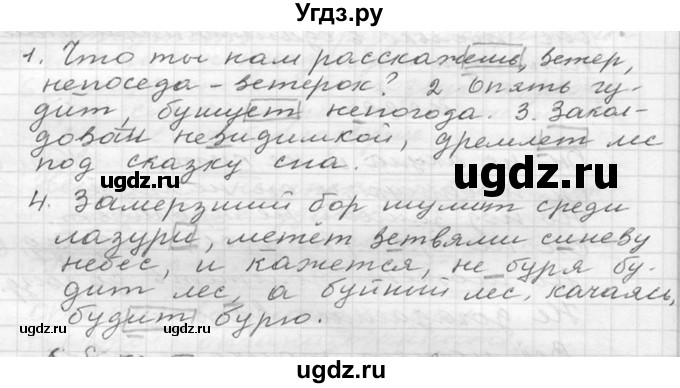 Угдз.ру
1. Что ты нам расскажешь, ветер,
непоседа - ветерок? 2 Опять гу-
дит, бушует непогода. 3. Закол-
дован невидимкой, дремлет лес
под сказку сна.
ugdz.ru
ugdz.ru
4. Замерзший бор шумит среди
лазури, метёт ветвями синеву
небес, и кажется, не буря бу-
дит лес, а буйный лес, качаясь,
будит бурю.
ugdz.ru
ugdz.ru
ugdz.ru